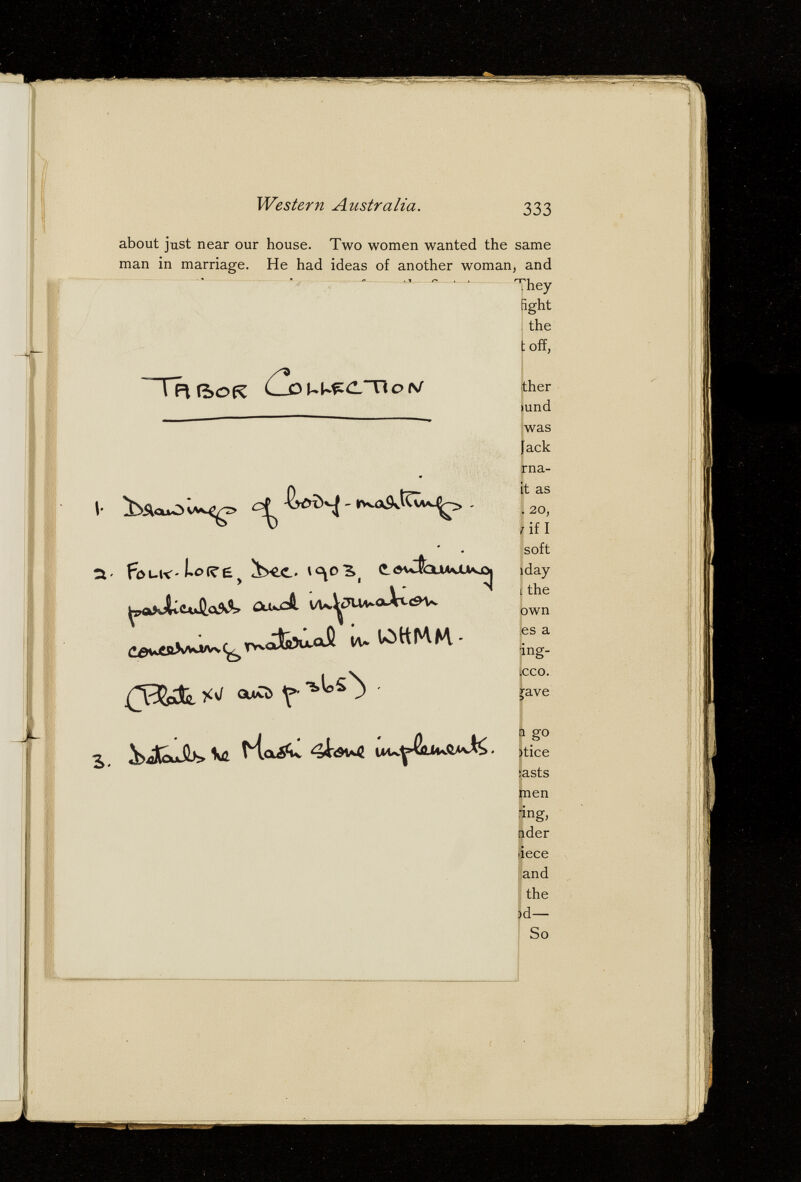 Western Australia. 333
about just near our house. Two women wanted the same
man in marriage. He had ideas of another woman, and
They
fight
the
t off,
ther
und
was
Jack
rna-
it as
. 20,
if I
soft
day
the
own
es a
ing-
cco.
gave
a go
tice
asts
men
ring,
nder
iece
and
the
d—
So
TABOR COLLECTION
1. Drawings of body-markings.
2. FOLK-LORE, Dec. 1903, containing
particulars and information
concerning material in WHMM.
(Plate XV and p. 365).
3. Details re Masai stone implements.